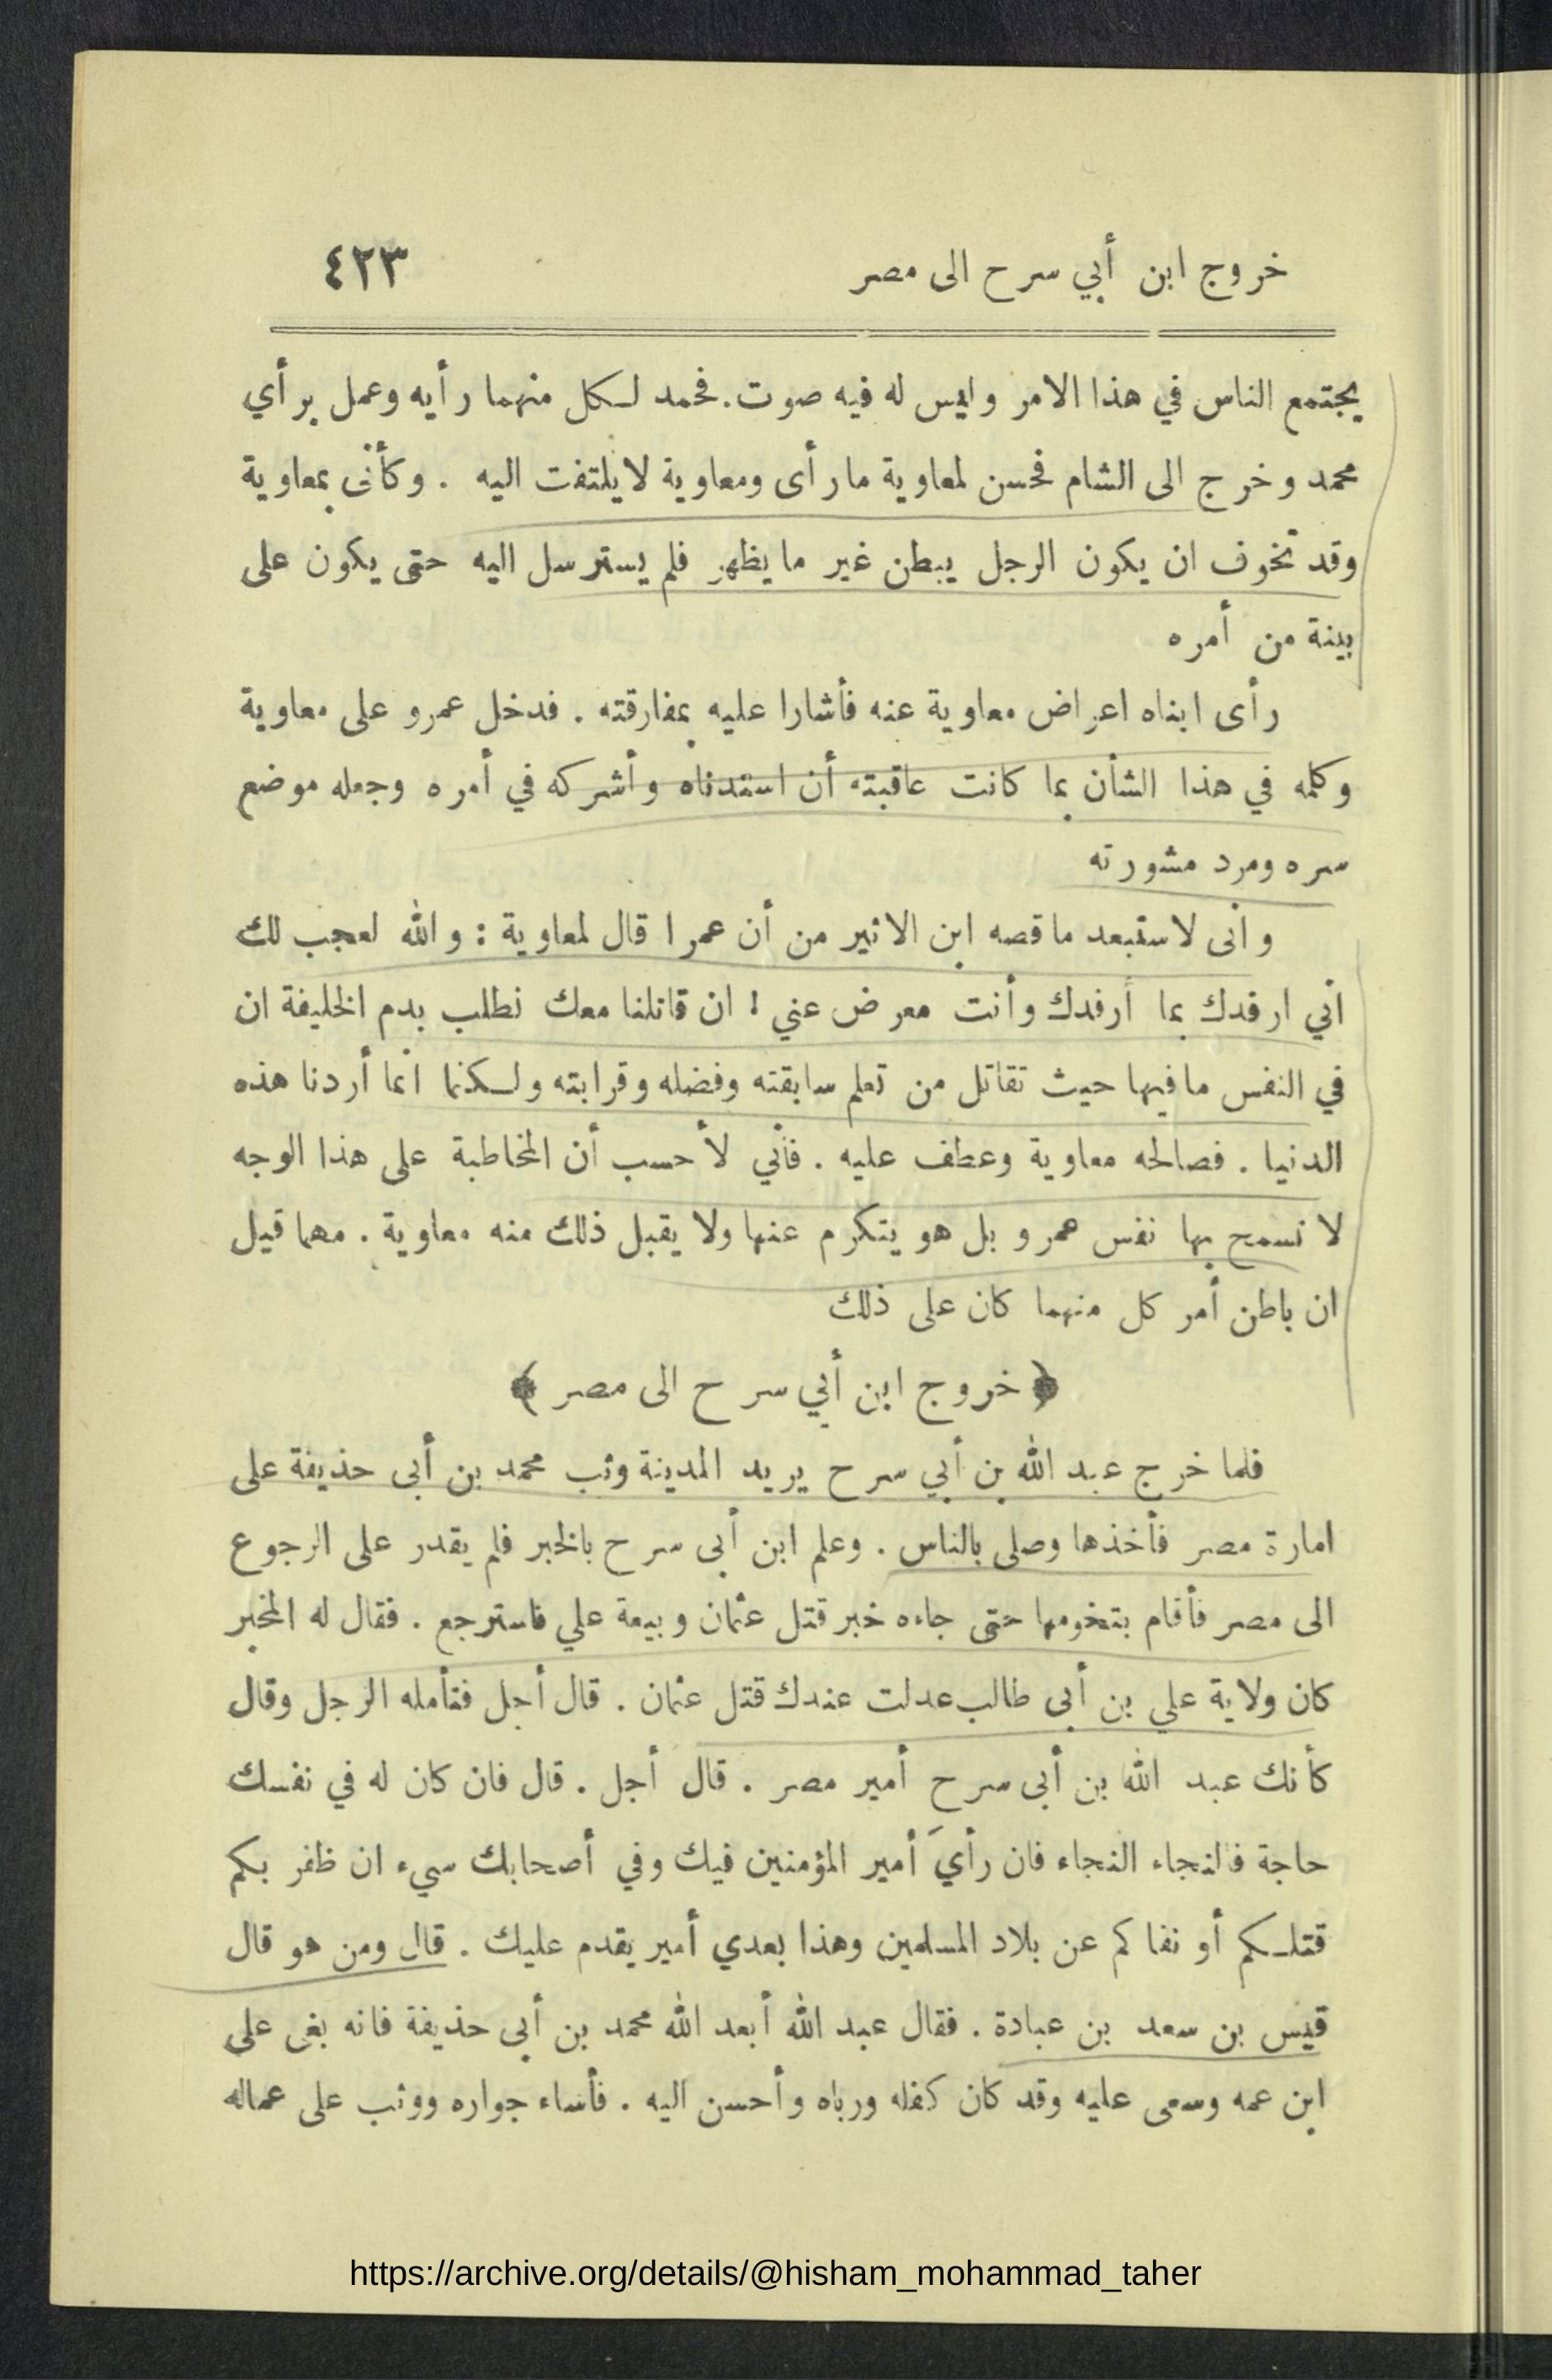 خروج ابن أبي سرح الى مصر ٤٢٣
يجتمع الناس في هذا الامر وليس له فيه صوت. فحمد لكل منهما رأيه وعمل برأي
محمد وخرج الى الشام فحسن لمعاوية مارأى ومعاوية لايلتفت اليه . وكأنى بمعاوية
وقد تخوف ان يكون الرجل يبطن غير مايظهر فلم يسترسل اليه حتى يكون على
بينة من أمره
رأى ابناه اعراض معاوية عنه فأشارا عليه بمفارقته . فدخل عمرو على معاوية
وكلمه في هذا الشأن بما كانت عاقبته أن استدناه وأشركه في أمره وجعله موضع
سره ومرد مشورته
وانى لاستبعد ماقصه ابن الاثير من أن عمرا قال لمعاوية : والله لعجب لك
اني ارفدك بما أرفدك وأنت معرض عني ! ان قاتلنا معك نطلب بدم الخليفة ان
في النفس مافيها حيث تقاتل من تعلم سابقته وفضله وقرابته ولكنا انما أردنا هذه
الدنيا . فصالحه معاوية وعطف عليه . فأني لأحسب أن المخاطبة على هذا الوجه
لا تسمح بها نفس عمرو بل هو يتكرم عنها ولا يقبل ذلك منه معاوية . مهما قيل
ان باطن أمر كل منهما كان على ذلك
﴿ خروج ابن أبي سرح الى مصر ﴾
فلما خرج عبد الله بن أبي سرح يريد المدينة وثب محمد بن أبى حذيفة على
امارة مصر فأخذها وصلى بالناس . وعلم ابن أبى سرح بالخبر فلم يقدر على الرجوع
الى مصر فأقام بتخومها حتى جاءه خبر قتل عثمان وبيعة علي فاسترجع . فقال له المخبر
كان ولاية علي بن أبى طالب عدلت عندك قتل عثمان . قال أجل فتأمله الرجل وقال
كأنك عبد الله بن أبى سرح أمير مصر . قال أجل . قال فان كان له في نفسك
حاجة فالنجاء النجاء فان رأيَ أمير المؤمنين فيك وفي أصحابك سيء ان ظفر بكم
قتلكم أو نفاكم عن بلاد المسلمين وهذا بعدي أمير يقدم عليك . قال ومن هو قال
قيس بن سعد بن عبادة . فقال عبد الله أبعد الله محمد بن أبى حذيفة فانه بغى على
ابن عمه وسعى عليه وقد كان كفله ورباه وأحسن اليه . فأساء جواره ووثب على عماله
https://archive.org/details/@hisham_mohammad_taher